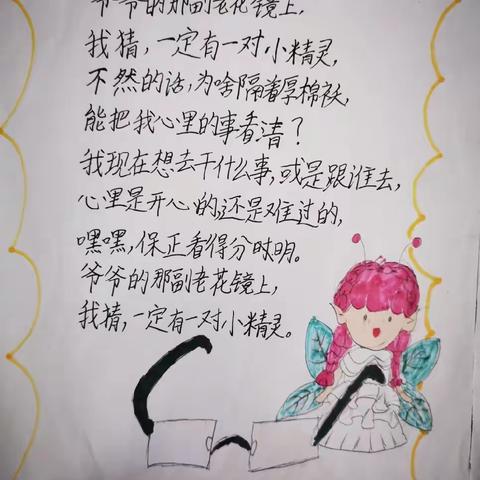 爷爷的那副老花镜上,
我猜,一定有一对小精灵,
不然的话,为啥隔着厚棉袄,
能把我心里的事看清?
我现在想去干什么事,或是跟谁去,
心里是开心的,还是难过的,
嘿嘿,保正看得分时明。
爷爷的那副老花镜上,
我猜,一定有一对小精灵。